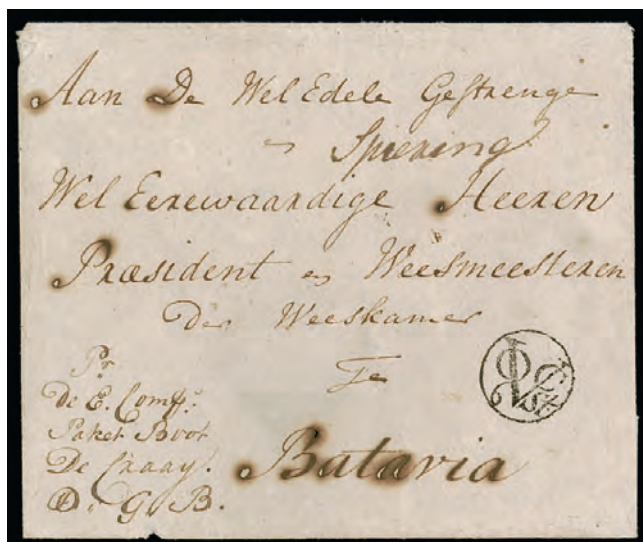 Aan De Wel Edele Gestrenge
en Spiering
Wel Eerewaardige Heeren
Præsident en Weesmeesteren
Der Weeskamer
Te
Batavia
Pr
De E. Comp:
Paket Boot
De Craay.
D. G. B.